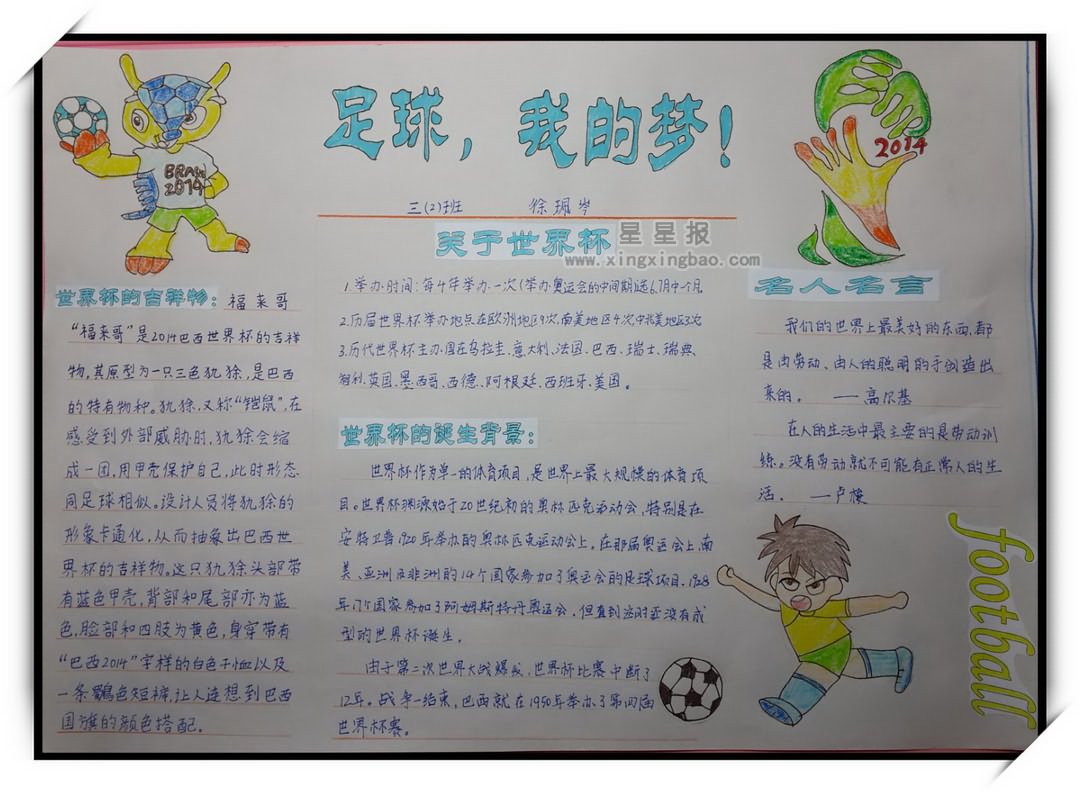 足球，我的梦！
三(2)班 徐珮岑
BRASIL
2014
2014
世界杯的吉祥物：福来哥
“福来哥”是2014巴西世界杯的吉祥
物,其原型为一只三色犰狳,是巴西
的特有物种。犰狳,又称“铠鼠”,在
感受到外部威胁时,犰狳会缩
成一团,用甲壳保护自己,此时形态
同足球相似。设计人员将犰狳的
形象卡通化,从而抽象出巴西世
界杯的吉祥物。这只犰狳头部带
有蓝色甲壳,背部和尾部亦为蓝
色,脸部和四肢为黄色,身穿带有
“巴西2014”字样的白色T恤以及
一条绿色短裤,让人连想到巴西
国旗的颜色搭配.
关于世界杯
星星报
www.xingxingbao.com
1.举办时间：每4年举办一次(举办奥运会的中间期)选6.7月中一个月
2.历届世界杯举办地点在欧洲地区9次,南美地区4次中北美地区3次
3.历代世界杯主办国在乌拉圭、意大利、法国、巴西、瑞士、瑞典、
智利、英国、墨西哥、西德、阿根廷、西班牙、美国。
世界杯的诞生背景：
世界杯作为单一的体育项目，是世界上最大规模的体育项
目。世界杯渊源始于20世纪初的奥林匹克运动会，特别是在
安特卫普1920年举办的奥林匹克运动会上。在那届奥运会上,南
美、亚洲及非洲的14个国家参加了奥运会的足球项目.1928
年17个国家参加了阿姆斯特丹奥运会，但直到这时还没有成
型的世界杯诞生。
由于第二次世界大战爆发,世界杯比赛中断了
12年。战争一结束，巴西就在1950年举办了第四届
世界杯赛。
名人名言
我们的世界上最美好的东西,都
是由劳动、由人的聪明的手创造出
来的。 ——高尔基
在人的生活中最主要的是劳动训
练。没有劳动就不可能有正常人的生
活。 —卢梭
football